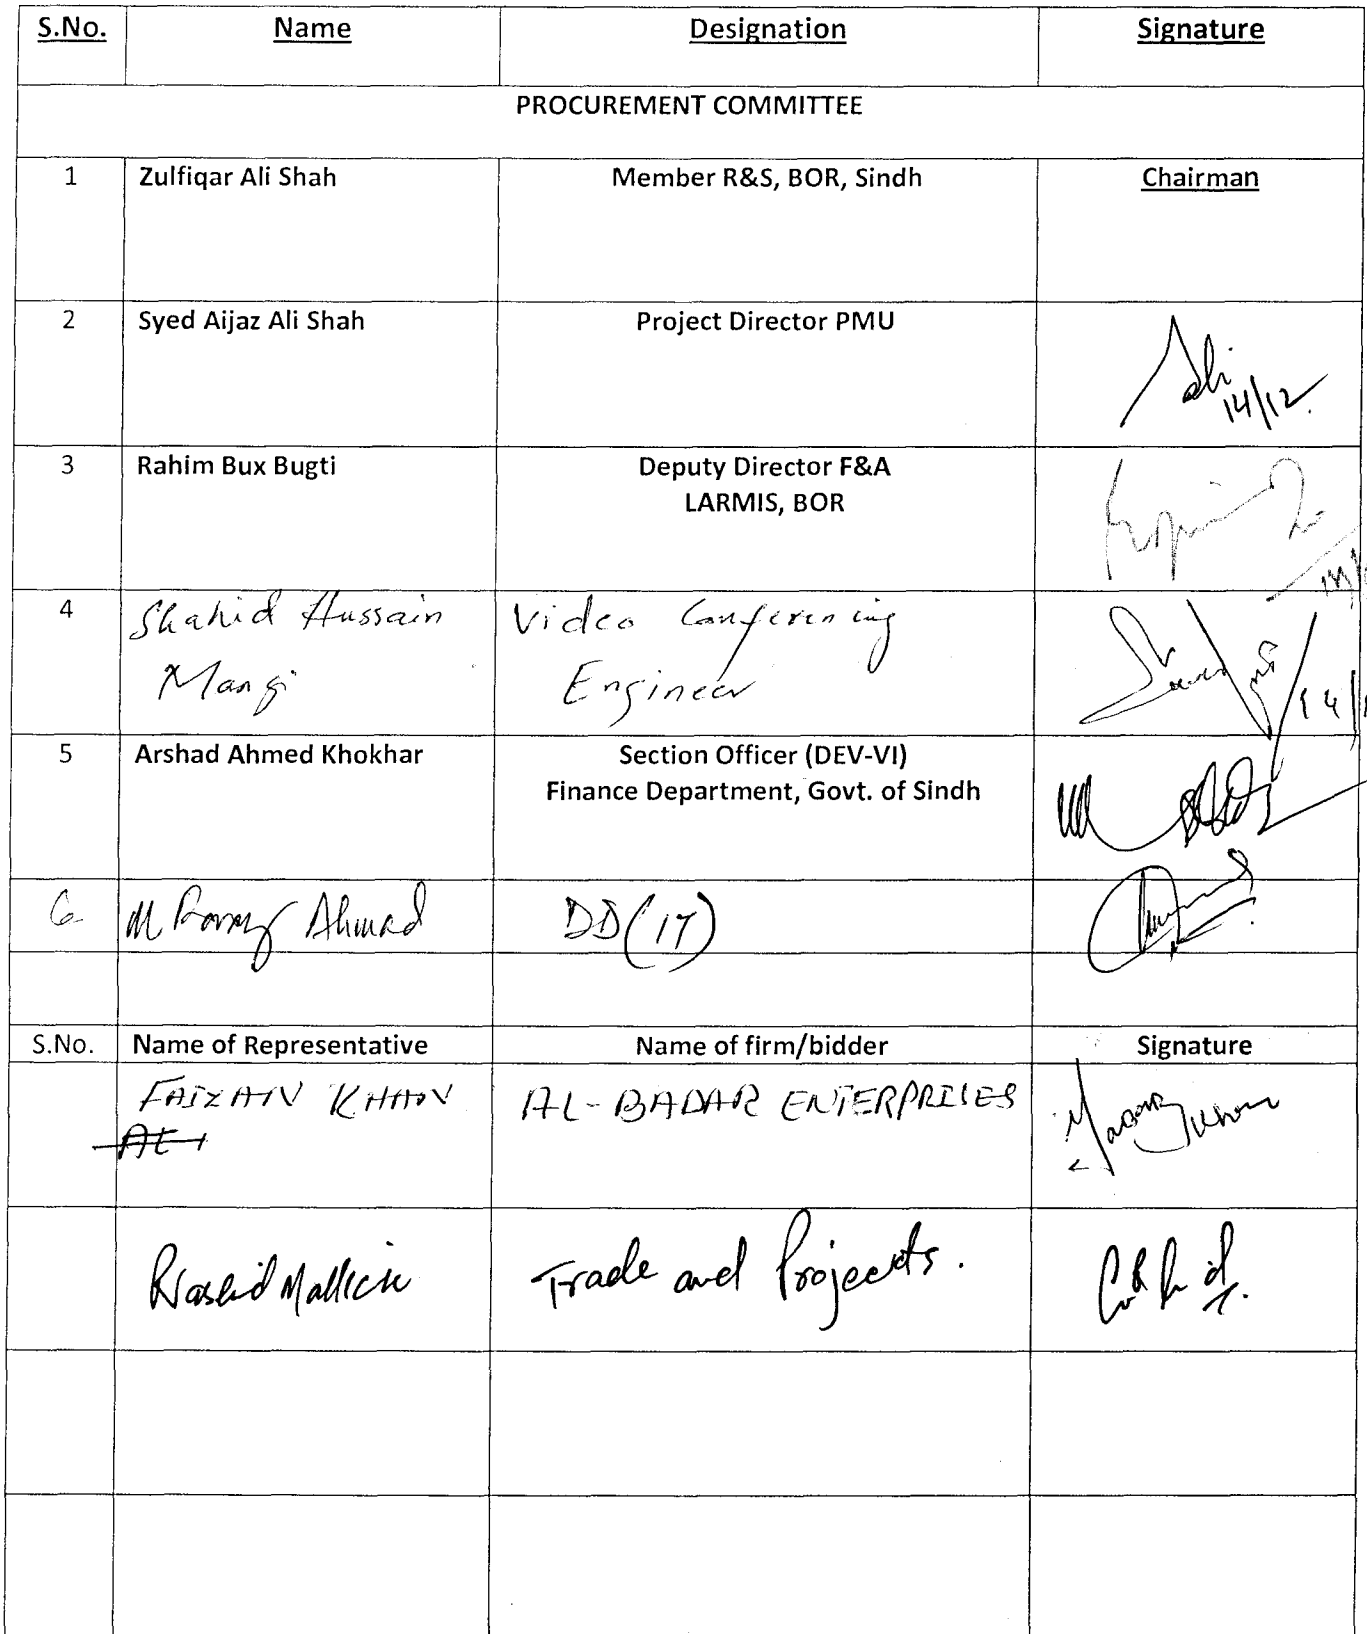 S.No. Name Designation Signature
PROCUREMENT COMMITTEE
1 Zulfiqar Ali Shah Member R&S, BOR, Sindh Chairman
2 Syed Aijaz Ali Shah Project Director PMU
14/12
3 Rahim Bux Bugti Deputy Director F&A
LARMIS, BOR
4 Shahid Hussain Video Conferencing
Mangi Engineer
5 Arshad Ahmed Khokhar Section Officer (DEV-VI)
Finance Department, Govt. of Sindh
6 M Ahmad DD(IT)
S.No. Name of Representative Name of firm/bidder Signature
FAIZAN KHAN AL-BADAR ENTERPRISES
AL
Rashid Mallick Trade and Projects.